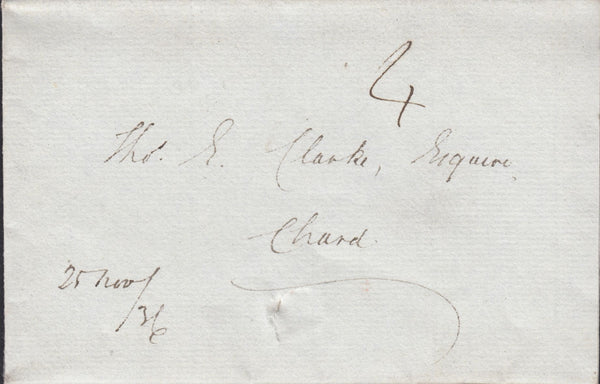 4
Tho.s E. Clarke, Esquire,
Chard
25 Nov/
/36